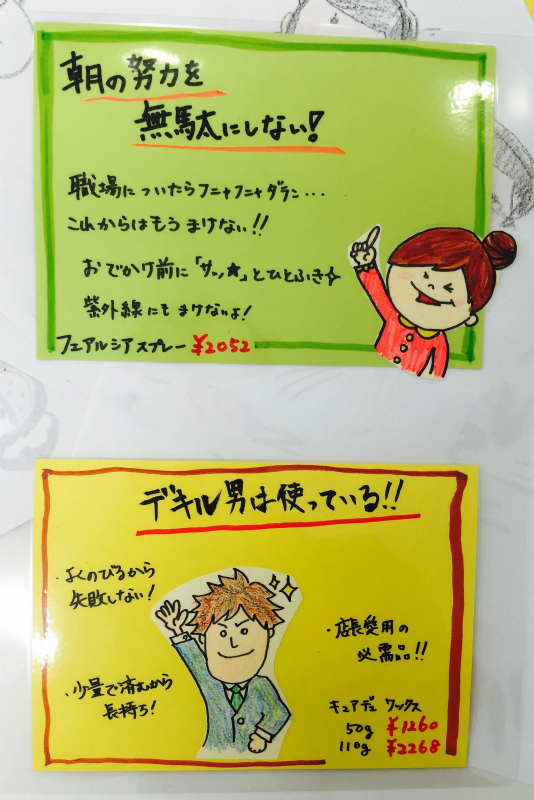 朝の努力を
無駄にしない!
職場についたらフニャフニャダラン...
これからはもうまけない!!
おでかけ前に「サッ★」とひとふき✧
紫外線にもまけないよ!
フェアルシアスプレー ¥2052
デキル男は使っている!!
・よくのびるから
失敗しない!
・店長愛用の
必需品!!
・少量で済むから
長持ち!
キュアデュ ワックス
50g ¥1260
110g ¥2268